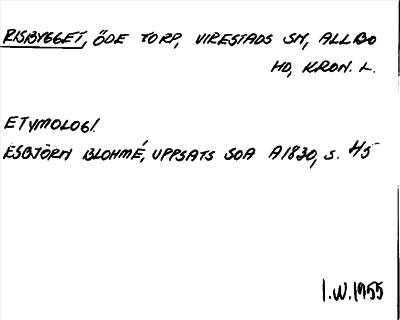 RISBYGGET, ÖDE TORP, VIRESTADS SN, ALLBO
HD, KRON. L.
ETYMOLOGI.
ESBJÖRN BLOHMÉ, UPPSATS SOA A1830, S. 45
I.W. 1955